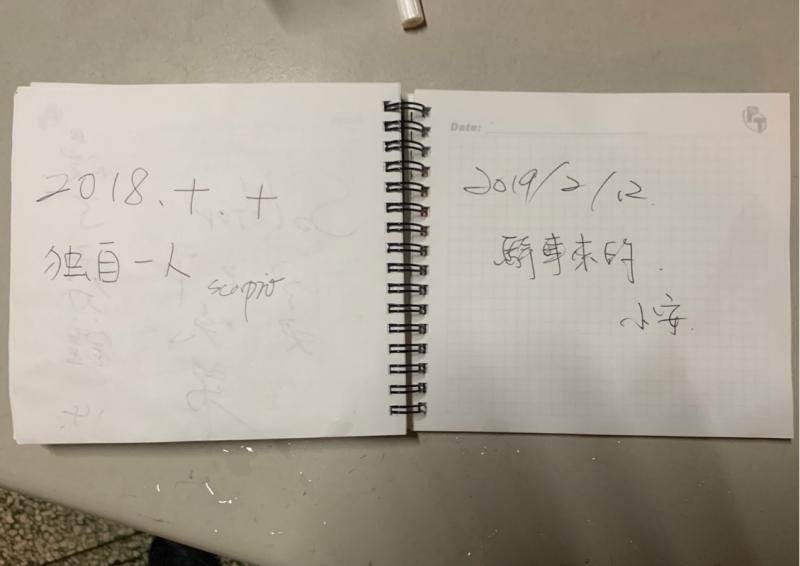 2018.十.十
独自一人
scopio
Date:
PT
2019/2/12.
騎車來的.
小安.